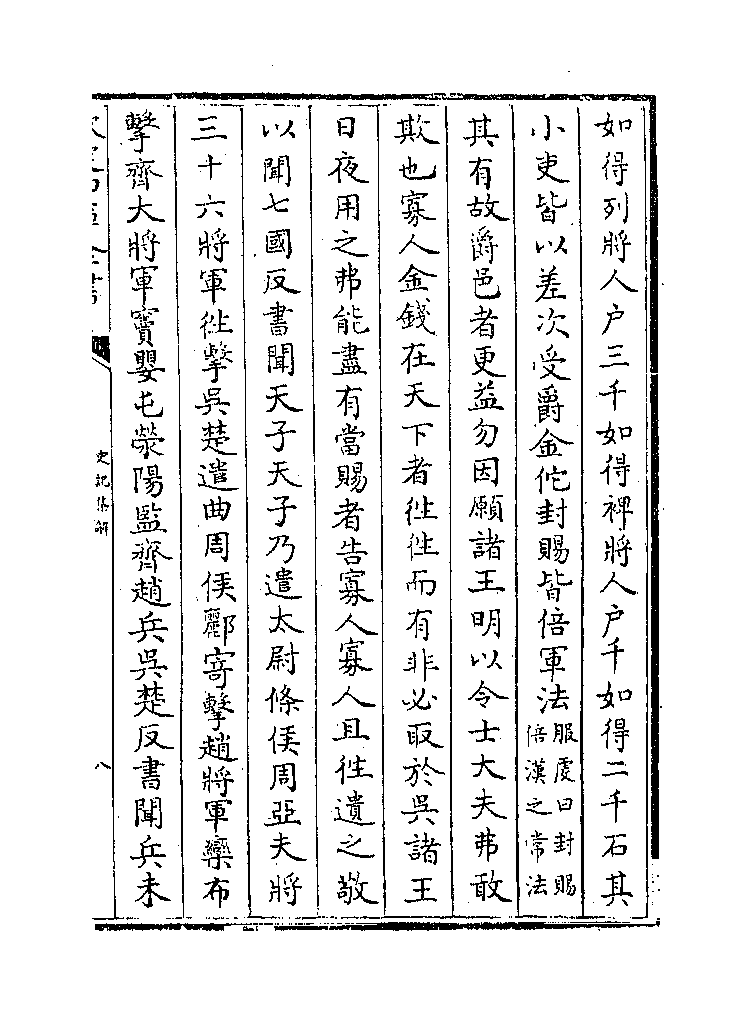 如得列將人户三千如得裨將人户千如得二千石其
小吏皆以差次受爵金佗封賜皆倍軍法服䖍曰封賜倍漢之常法
其有故爵邑者更益勿因願諸王明以令士大夫弗敢
欺也寡人金錢在天下者徃徃而有非必取於吳諸王
日夜用之弗能盡有當賜者告寡人寡人且徃遺之敬
以聞七國反書聞天子天子乃遣太尉條侯周亞夫將
三十六將軍徃擊吳楚遣曲周侯酈寄擊趙將軍欒布
擊齊大將軍竇嬰屯滎陽監齊趙兵吳楚反書聞兵未
史記集解
八